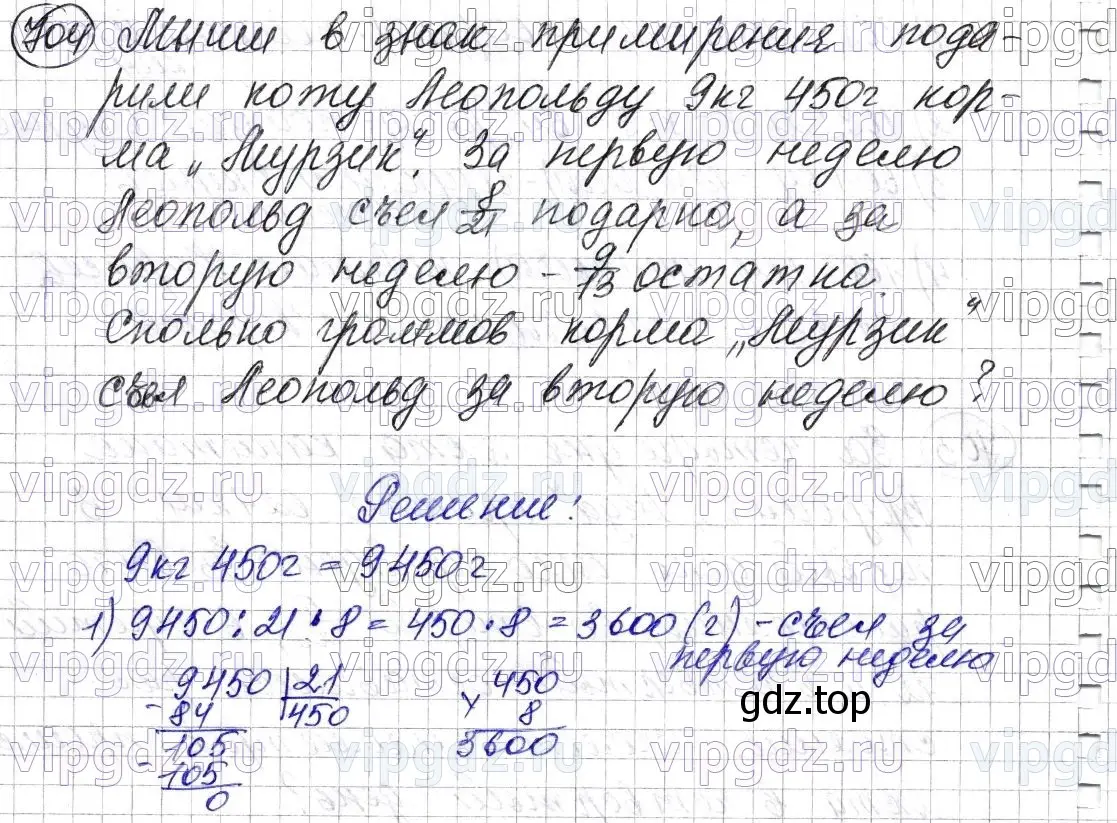 704 Мыши в знак примирения пода-
рили коту Леопольду 9кг 450г кор-
ма „Мурзик“. За первую неделю
Леопольд съел 8/21 подарка, а за
вторую неделю - 9/13 остатка.
Сколько граммов корма „Мурзик“
съел Леопольд за вторую неделю?
Решение:
9кг 450г = 9450г
1) 9450 : 21 · 8 = 450 · 8 = 3600 (г) - съел за
первую неделю
9450 | 21
- 84 450
105
- 105
0
450
× 8
3600
gdz.top
vipgdz.ru